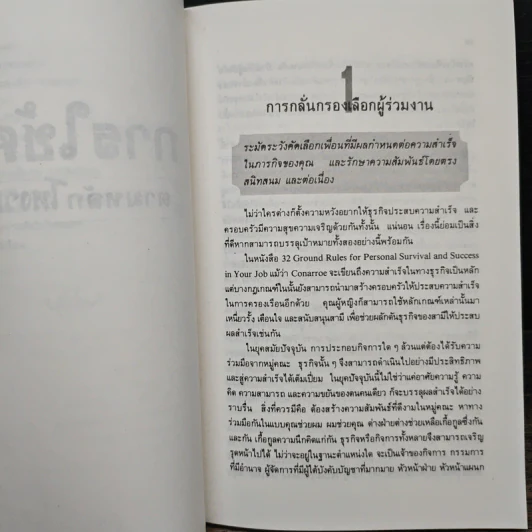 การใช้ค
ตามหลักโหงว
1
การกลั่นกรองเลือกผู้ร่วมงาน
ระมัดระวังคัดเลือกเพื่อนที่มีผลกำหนดต่อความสำเร็จ
ในภารกิจของคุณ และรักษาความสัมพันธ์โดยตรง
สนิทสนม และต่อเนื่อง
ไม่ว่าใครต่างก็ตั้งความหวังอยากให้ธุรกิจประสบความสำเร็จ และ
ครอบครัวมีความสุขความเจริญด้วยกันทั้งนั้น แน่นอน เรื่องนี้ย่อมเป็นสิ่ง
ที่ดีหากสามารถบรรลุเป้าหมายทั้งสองอย่างนี้พร้อมกัน
ในหนังสือ 32 Ground Rules for Personal Survival and Success
in Your Job แม้ว่า Conarroe จะเขียนถึงความสำเร็จในทางธุรกิจเป็นหลัก
แต่บางกฎเกณฑ์ในนั้นยังสามารถนำมาสร้างครอบครัวให้ประสบความสำเร็จ
ในการครองเรือนอีกด้วย คุณผู้หญิงก็สามารถใช้หลักเกณฑ์เหล่านั้นมา
เหนี่ยวรั้ง เตือนใจ และสนับสนุนสามี เพื่อช่วยผลักดันธุรกิจของสามีให้ประสบ
ผลสำเร็จเช่นกัน
ในยุคสมัยปัจจุบัน การประกอบกิจการใด ๆ ล้วนแต่ต้องได้รับความ
ร่วมมือจากหมู่คณะ ธุรกิจนั้น ๆ จึงสามารถดำเนินไปอย่างมีประสิทธิภาพ
และสู่ความสำเร็จได้เต็มเปี่ยม ในยุคปัจจุบันนี้ไม่ใช่ว่าแค่อาศัยความรู้ ความ
คิด ความสามารถ และความขยันของตนคนเดียว ก็จะบรรลุผลสำเร็จได้อย่าง
ราบรื่น สิ่งที่ควรมีคือ ต้องสร้างความสัมพันธ์ที่ดีงามในหมู่คณะ หาทาง
ร่วมมือกันในแบบคุณช่วยผม ผมช่วยคุณ ต่างฝ่ายต่างช่วยเหลือเกื้อกูลซึ่งกัน
และกัน เกื้อกูลความนึกคิดแก่กัน ธุรกิจหรือกิจการทั้งหลายจึงสามารถเจริญ
รุดหน้าไปได้ ไม่ว่าจะอยู่ในฐานะตำแหน่งใด จะเป็นเจ้าของกิจการ กรรมการ
ที่มีอำนาจ ผู้จัดการที่มีผู้ใต้บังคับบัญชาที่มากมาย หัวหน้าฝ่าย หัวหน้าแผนก